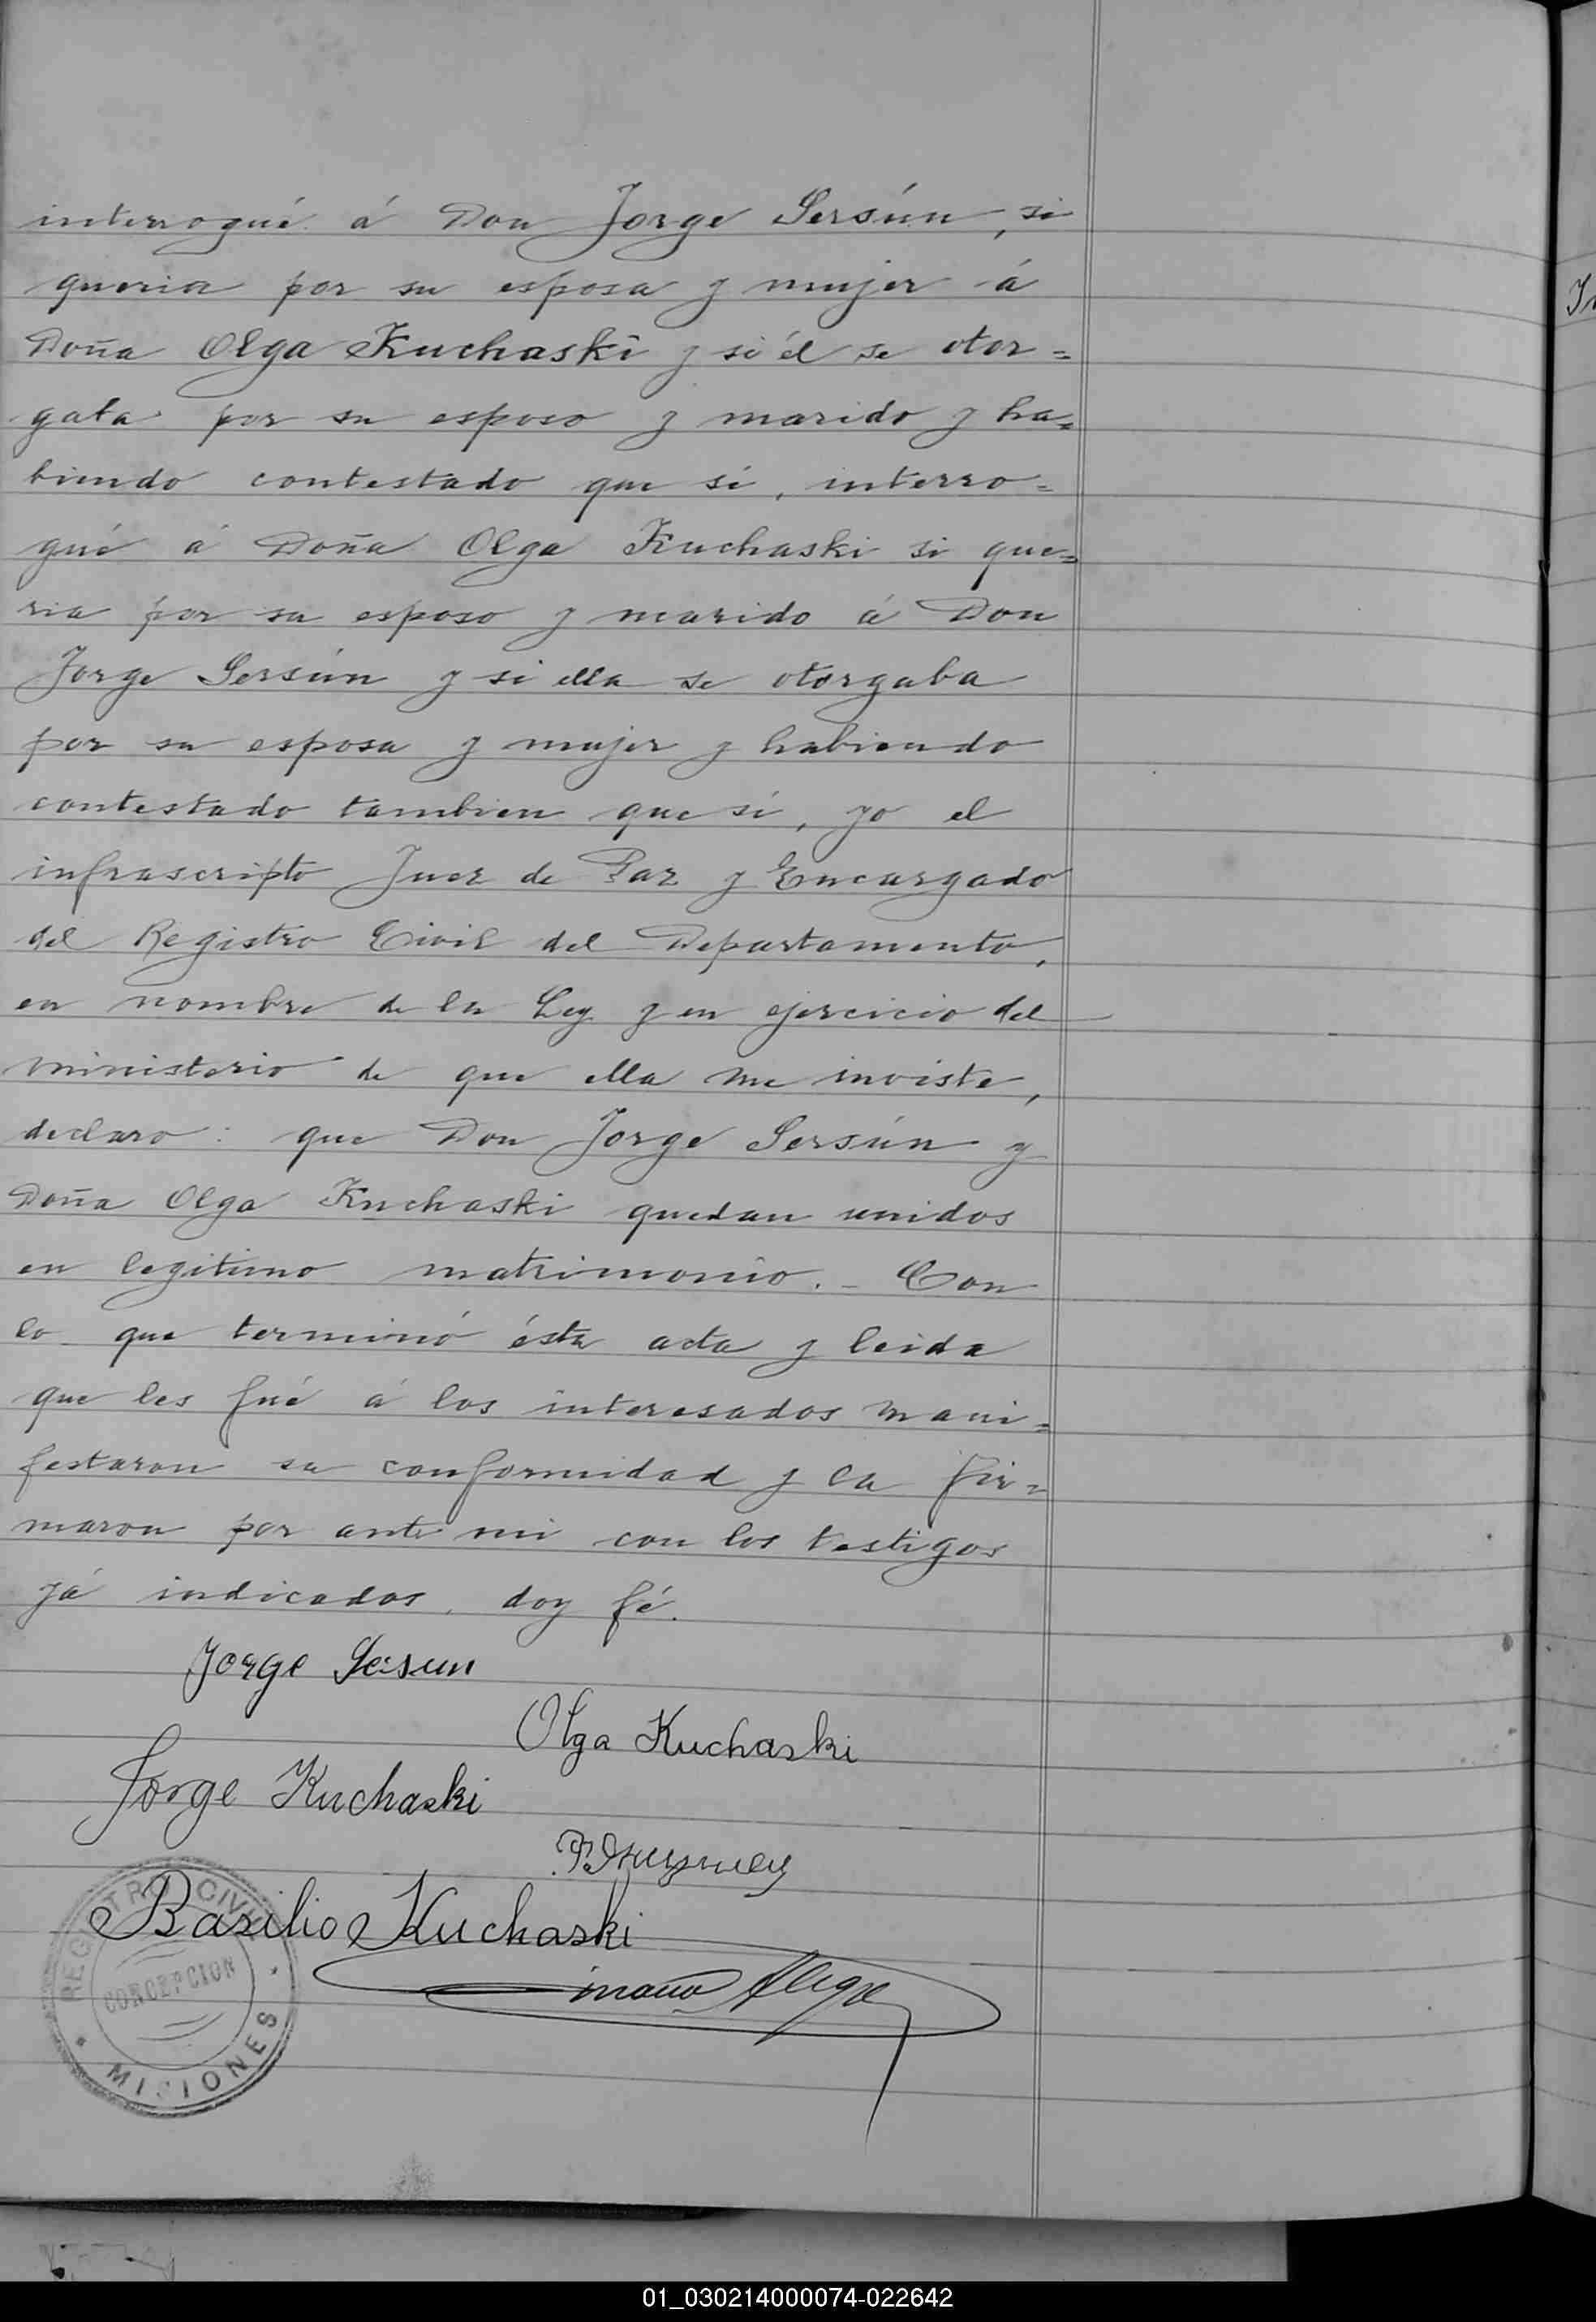 interrogué á Don Jorge Sersún, si
queria por su esposa y mujer á
Doña Olga Kuchaski y si él se otor=
gaba por su esposo y marido y ha=
biendo contestado que sí, interro=
gué á Doña Olga Kuchaski si que=
ria por su esposo y marido á Don
Jorge Sersún y si ella se otorgaba
por su esposa y mujer y habiendo
contestado tambien que sí, yo el
infrascripto Juez de Paz y Encargado
del Registro Civil del Departamento,
en nombre de la Ley y en ejercicio del
ministerio de que ella me inviste,
declaro: que Don Jorge Sersún y
Doña Olga Kuchaski quedan unidos
en legitimo matrimonio. - Con
lo que terminó ésta acta y leida
que les fué á los interesados mani=
festaron su conformidad y la fir=
maron por ante mi con los testigos
yá indicados, doy fé.
Jorge Sersun
Olga Kuchaski
Jorge Kuchaski
Basilio Kuchaski
REGISTRO CIVIL
CONCEPCION
MISIONES
01_030214000074-022642